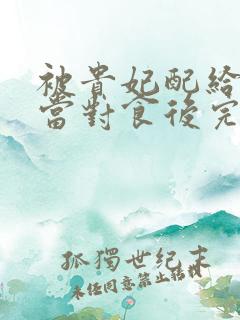 被貴妃配給
當對食後完
孤獨世紀末
未經同意禁止轉載